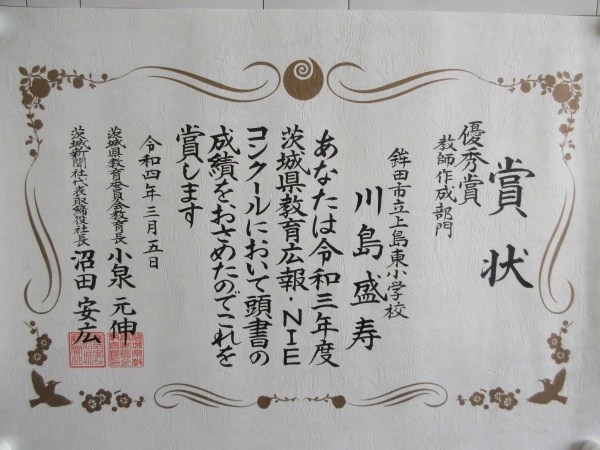 賞状
優秀賞
教師作成部門
鉾田市立上島東小学校
川島盛寿
あなたは令和三年度
茨城県教育広報・NIE
コンクールにおいて頭書の
成績をおさめたのでこれを
賞します
令和四年三月五日
茨城県教育委員会教育長 小泉元伸
茨城新聞社代表取締役社長 沼田安広